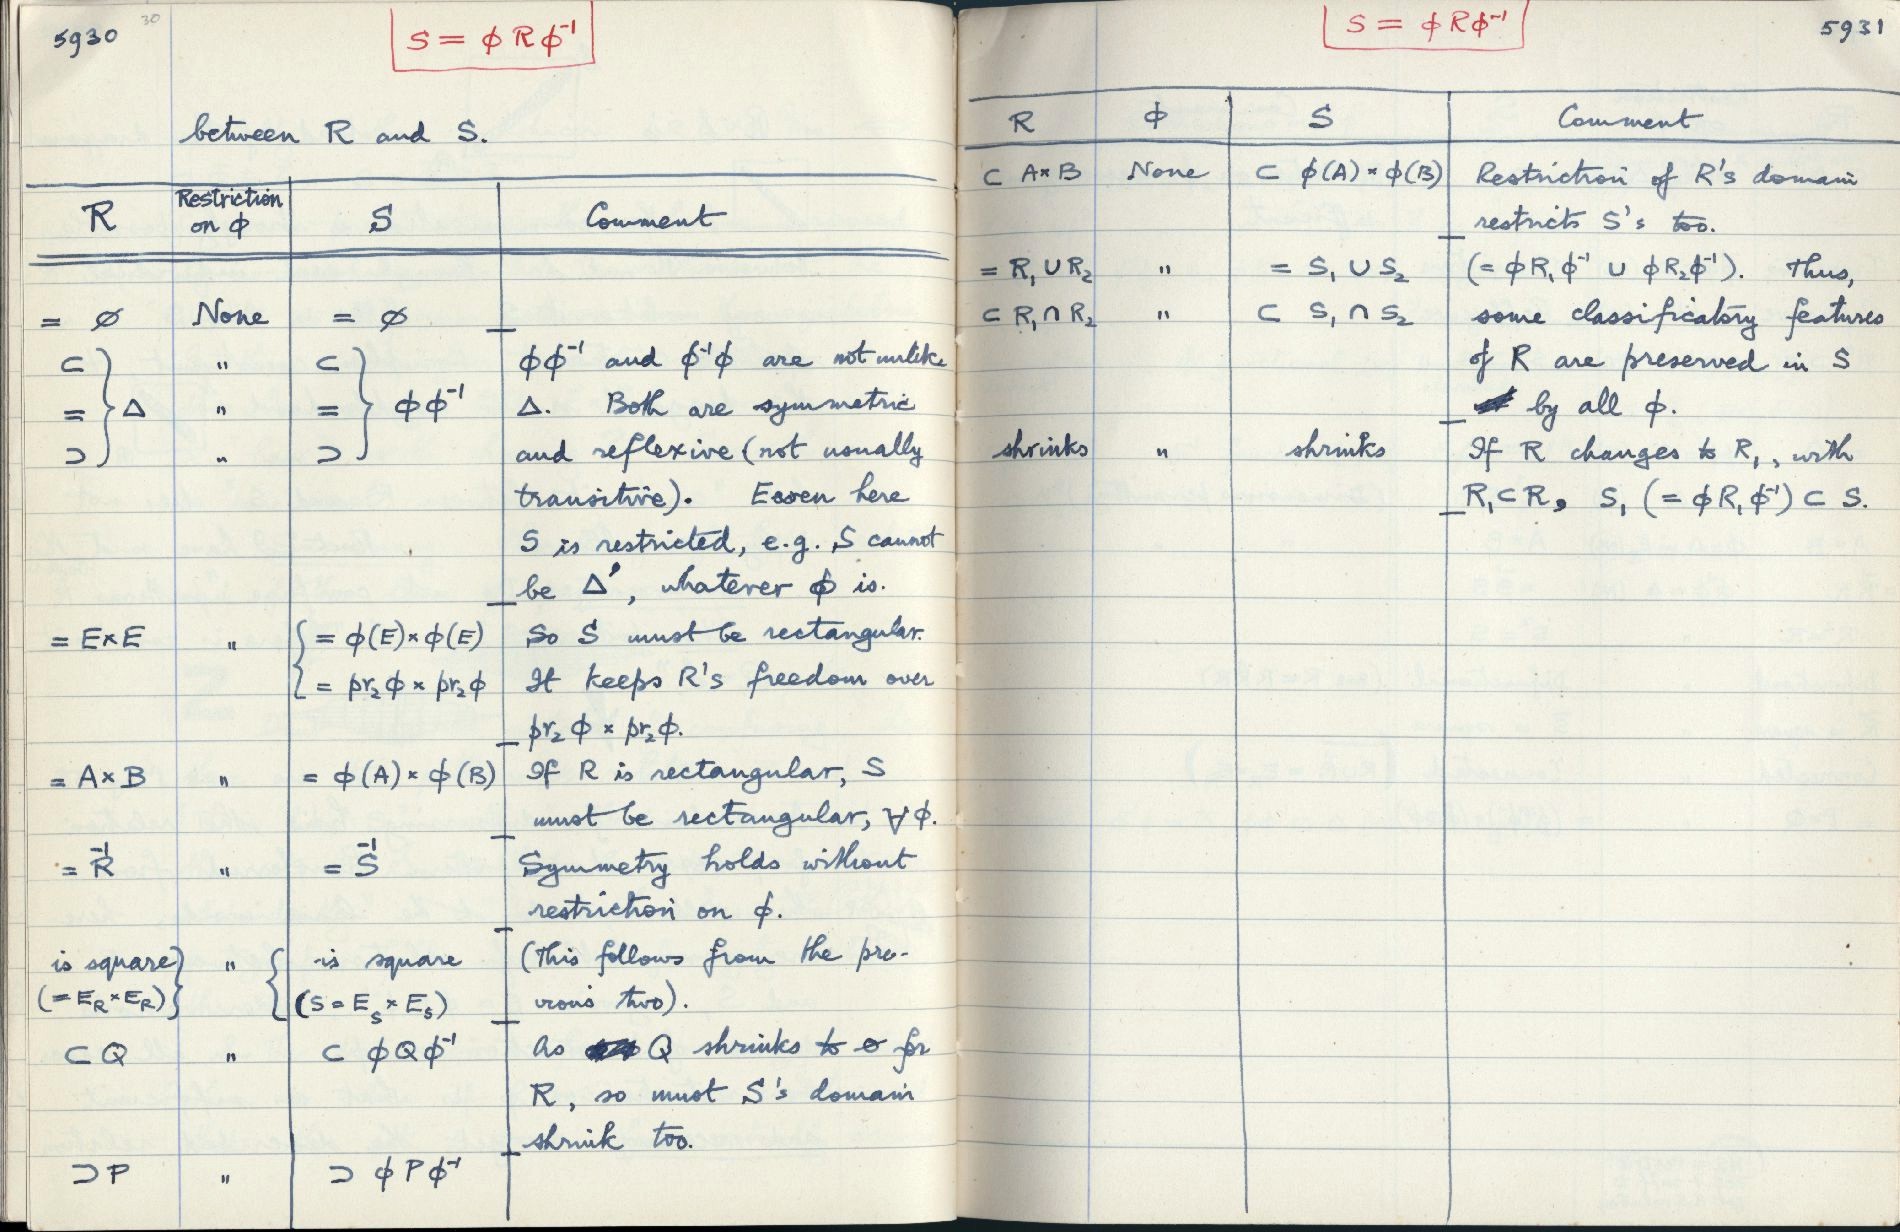 5930
30
S = φ R φ⁻¹
between R and S.
R | Restriction on φ | S | Comment
= ∅ | None | = ∅
⊂ } | " | ⊂ } | φφ⁻¹ and φ⁻¹φ are not unlike
= } Δ | " | = } φφ⁻¹ | Δ. Both are symmetric
⊃ } | " | ⊃ } | and reflexive (not usually
transitive). Even here
S is restricted, e.g. S cannot
be Δ', whatever φ is.
= E×E | " | { = φ(E)×φ(E) | So S must be rectangular.
{ = pr₂φ × pr₂φ | It keeps R's freedom over
pr₂φ × pr₂φ.
= A×B | " | = φ(A)×φ(B) | If R is rectangular, S
must be rectangular, ∀φ.
= R⁻¹ | " | = S⁻¹ | Symmetry holds without
restriction on φ.
is square } | " | { is square | (This follows from the pre-
(= E_R×E_R) } | { (S = E_S × E_S) | vious two).
⊂ Q | " | ⊂ φQφ⁻¹ | As Q shrinks to ∅ for
R, so must S's domain
shrink too.
⊃ P | " | ⊃ φPφ⁻¹
S = φRφ⁻¹
5931
R | φ | S | Comment
⊂ A×B | None | ⊂ φ(A)×φ(B) | Restriction of R's domain
restricts S's too.
= R₁∪R₂ | " | = S₁∪S₂ | (= φR₁φ⁻¹ ∪ φR₂φ⁻¹). Thus,
⊂ R₁∩R₂ | " | ⊂ S₁∩S₂ | some classificatory features
of R are preserved in S
by all φ.
shrinks | " | shrinks | If R changes to R₁, with
R₁⊂R, S₁ (= φR₁φ⁻¹) ⊂ S.